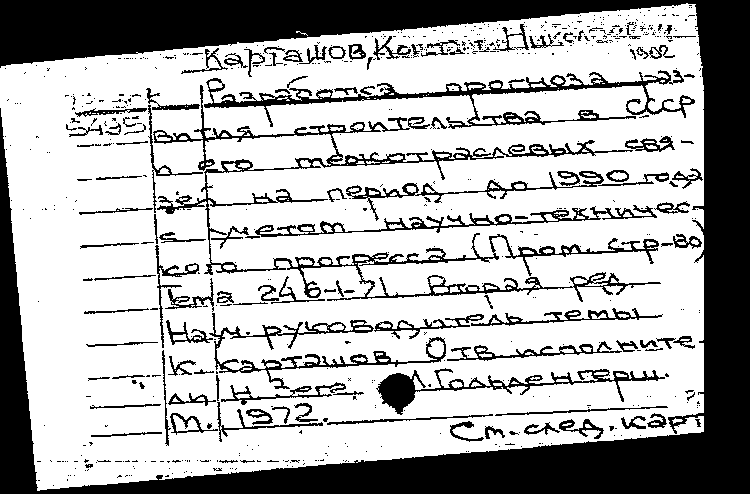 Карташов, Констант. Николаевич
1902
Разработка прогноза раз-
5495
вития строительства в СССР
и его межотраслевых свя-
зей на период до 1990 года
с учетом научно-техничес-
кого прогресса. (Пром. стр-во)
Тема 246-1-71. Вторая ред.
Науч. руководитель темы
К. Карташов, Отв исполните-
ли Н. Зега. Л. Гольденгерш.
М., 1972.
См. след. карт